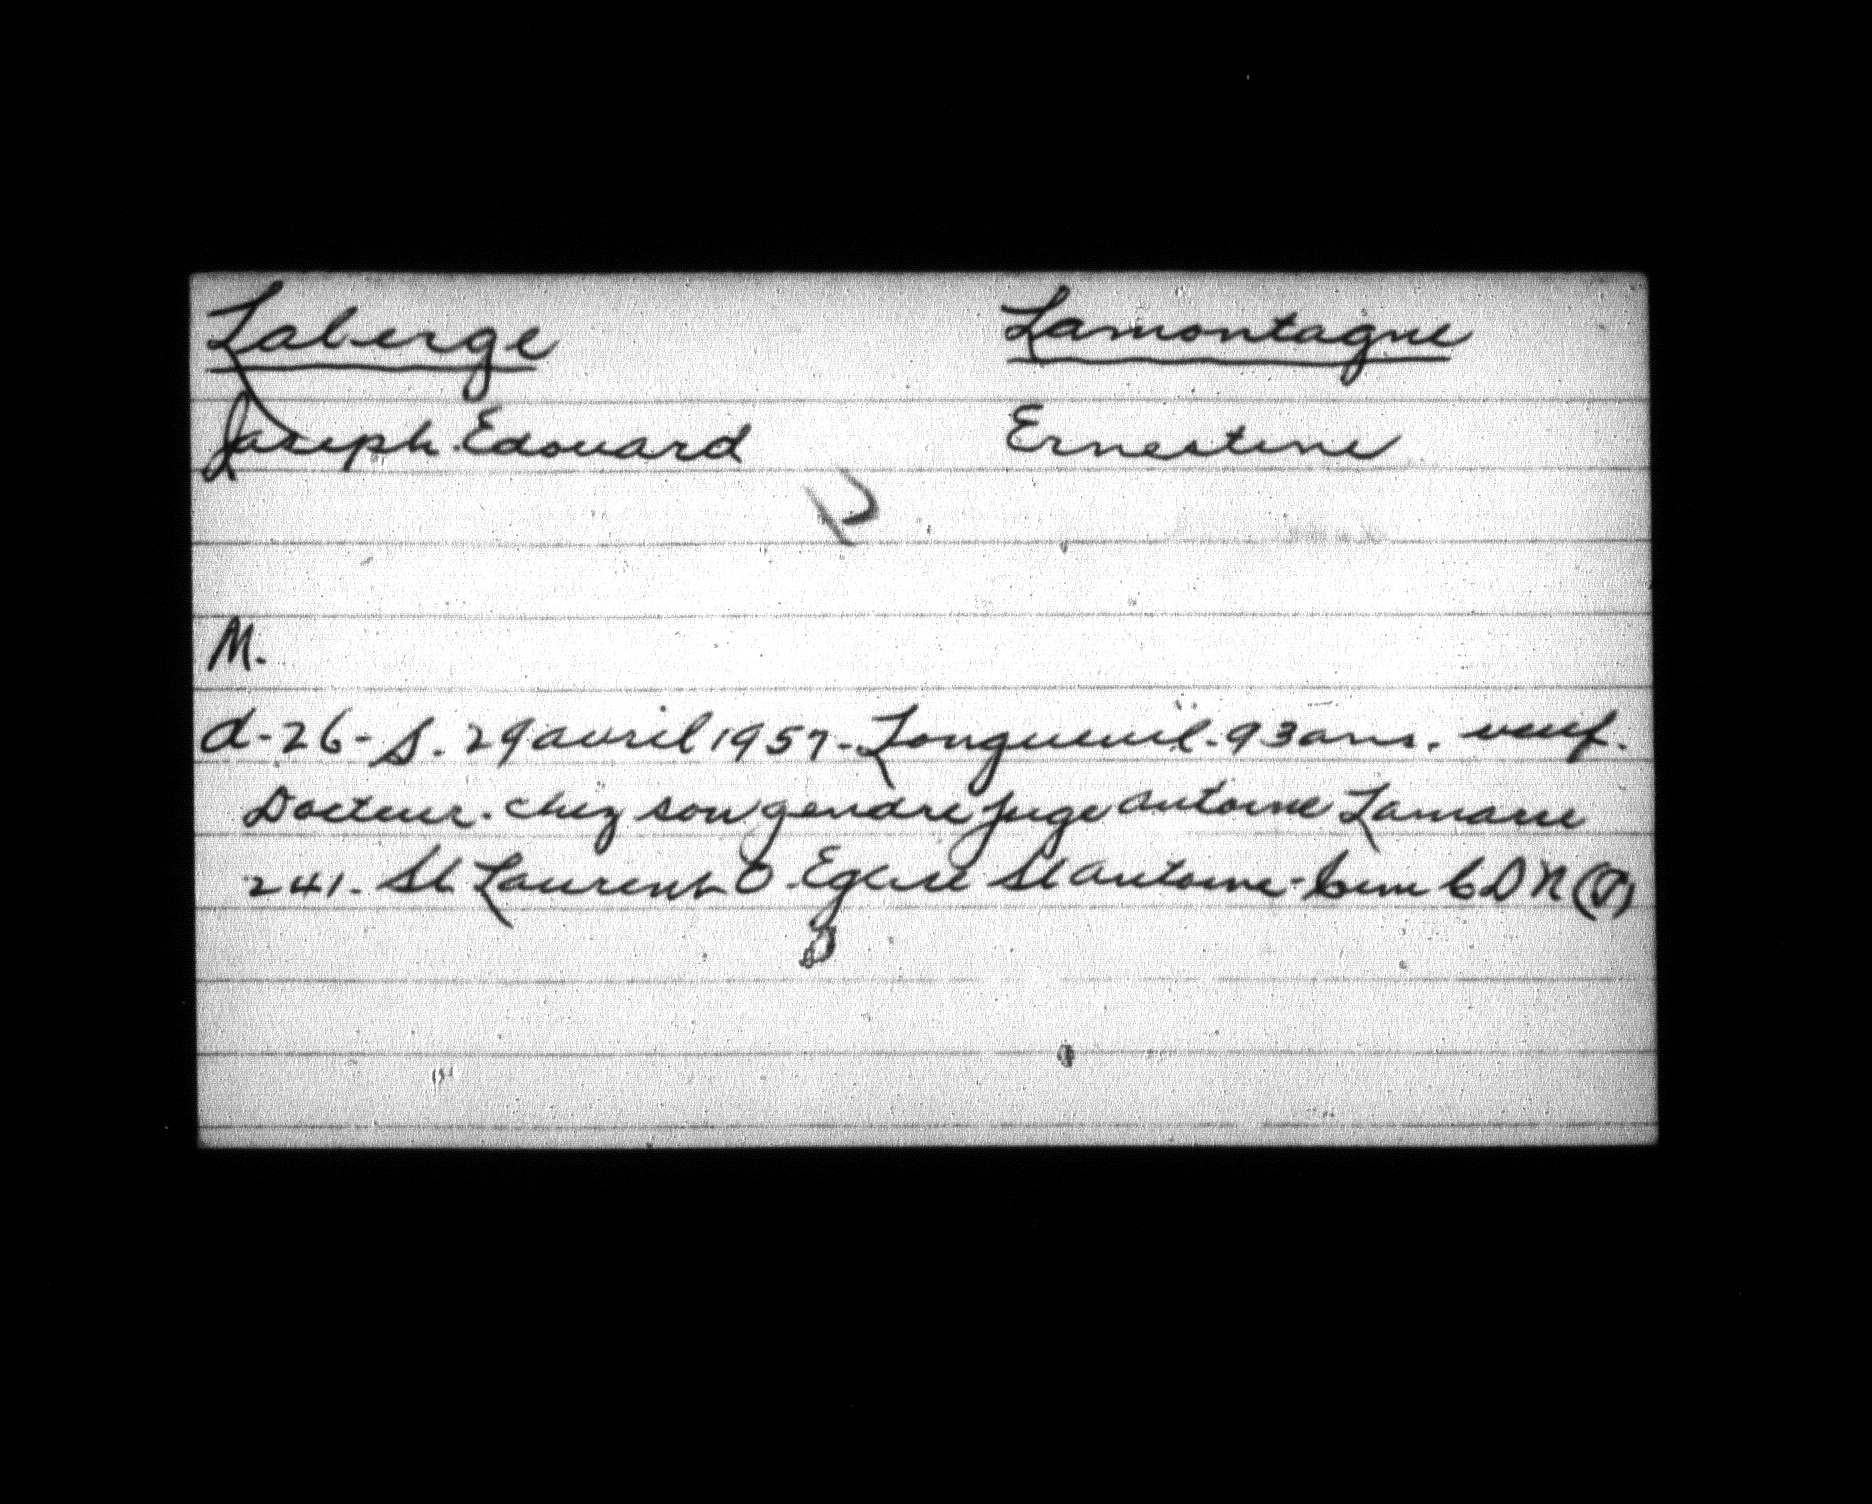 Laberge Lamontagne
Joseph Edouard Ernestine
M.
d-26-S. 29 avril 1957-Longueuil-93 ans. veuf.
Docteur. chez son gendre juge Antoine Lamarre
241-St Laurent O. Eglise St Antoine-Cim CDN (P)